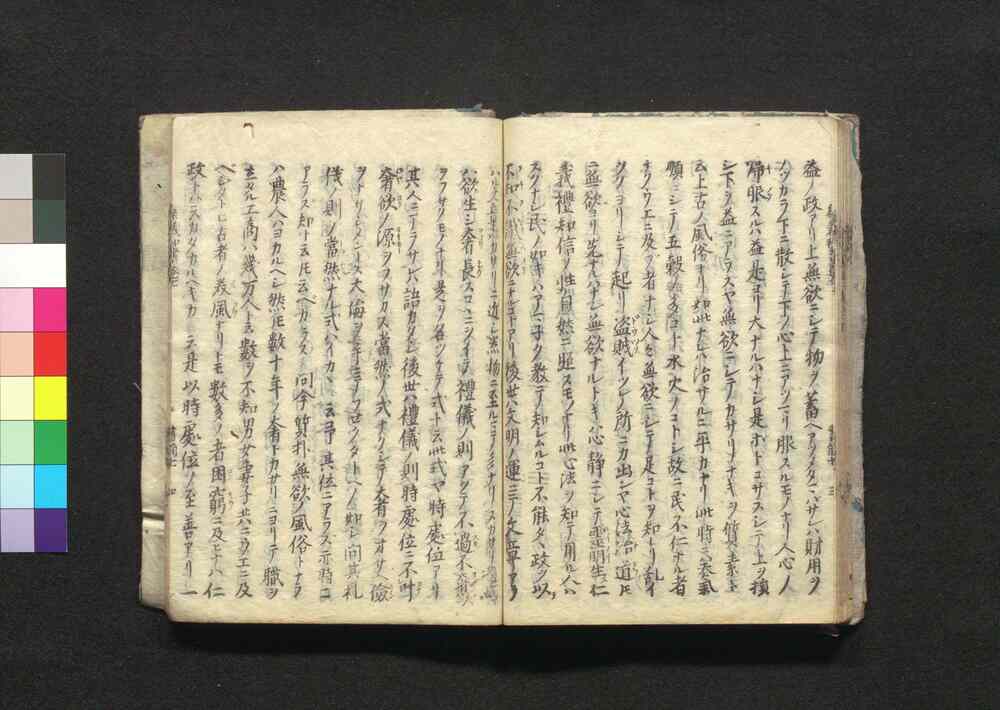 益ノ政アリ上無欲ニシテ物ヲ蓄ヘアツメタマハサレハ財用ヲ
ノツカラ下ニ散シテ天下ノ心上ニアツマリ服スルモノナリ人心ノ
帰服スルハ益是ヨリ大ナルハナシ是ホトコサスシテ上ヲ損
シ下ヲ益ニアラスヤ無欲ニシテカサリナキヲ質素ト
云上古ノ風俗ナリ如此ナレハ治サルニ平カナリ此時ニ
順ニシテ五穀ノ多コト水火ノコトシ故ニ民ニ不仁ナル者
ナクウエニ及フ者ナシ人々無欲ニシテ足コトヲ知レリ乱
ノヨリシテ起リ盗賊イツレノ所ニカ出シヤ心法治道ト
ニ無欲ヨリ先ナルハナシ無欲ナルトキハ心静ニシテ霊明生ス仁
義禮知信ノ性自然ニ照スモノナリ此心法ヲ知テ用ル人ハ
スクナシ民ノ如キハアマ子ク教テ知シムルコト不能タヽ政ヲ以
不知不識無欲ニナルコトアリ後世ハ文明ノ運ニシテ文章アラ
ハ欲生シ奢長スコヽニヲイテ禮儀ノ則アツテ不過不及
ヲフサクモノナリ是ヲ名ツケテ式ト云此式ヤ時處位アリ
其人ニアラサレハ語カタシ後世ハ禮儀ノ則時處位ニ不叶
奢欲ノ源ヲフサカス當然ノ式ナクシテ奢ヲオサヘ儉
ヲナサシメントス大海ヲ手ニテフセクタトヘノ如シ問其礼
儀ノ則ノ當然ナル式ハイカヽ云予其位ニアラス亦時ニ
アラス知ト云トモ云ヘカラス 問今質朴無欲ノ風俗トナラ
ハ農人ハヨカルヘシ然トモ數十年ノ奢トカサリニヨリテ職ヲ
立タル工商ハ幾万人ト云數ヲ不知男女妻子共ニウエニ及
ヘシタトヒ古者ノ義風ナリトモ數多ノ者困窮ニ及ヒナハ仁
政トハ云カタカルヘキカ 云是以時處位ノ至善アリ一